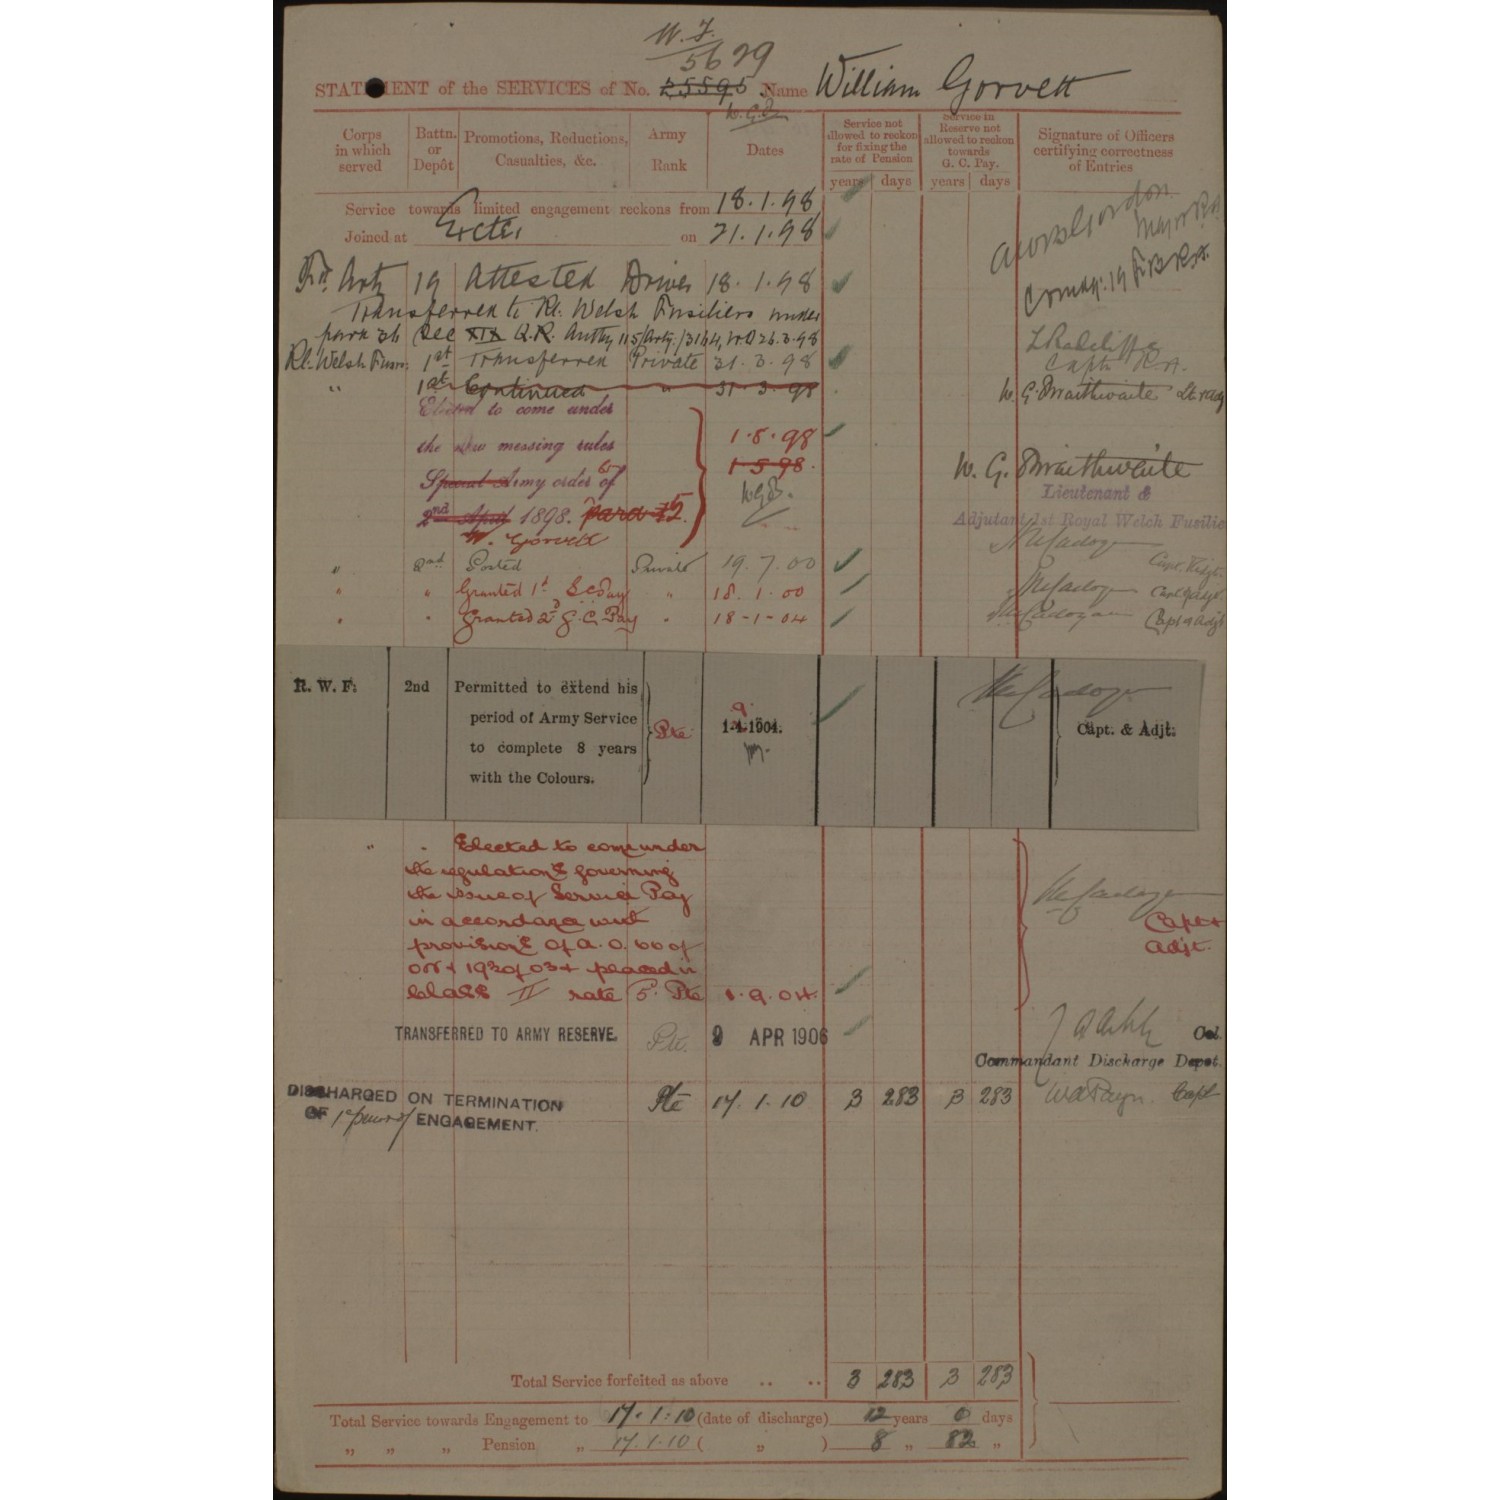 W.F.
5629
STATEMENT of the SERVICES of No. 25595 Name William Gorvett
W.G.B.
Corps in which served
Battn. or Depôt
Promotions, Reductions, Casualties, &c.
Army Rank
Dates
Service not allowed to reckon for fixing the rate of Pension
Service in Reserve not allowed to reckon towards G. C. Pay.
Signature of Officers certifying correctness of Entries
years days years days
Service towards limited engagement reckons from 18.1.98
Joined at Exeter on 21.1.98
Gordon Major R.A.
Fd. Arty 19 Attested Driver 18.1.98 Commg: 19 F.B.R.A.
Transferred to Rl. Welsh Fusiliers under
para 36 Sec XIX Q.R. Authy 115/Arty/3164, WO 26.3.98
Rl. Welsh Fusrs. 1st Transferred Private 31.3.98 Radcliffe Capt R.A.
" 1st Continued " 31.3.98 W. G. Braithwaite Lt
Elected to come under
the new messing rules 1.8.98
Special Army order 65 of 1.5.98. W. G. Braithwaite
2nd April 1898. para 15. W.G.B. Lieutenant &
W. Gorvett Adjutant 1st Royal Welch Fusilie
" 2nd Posted Private 19.7.00 Cadogan Capt.
" " Granted 1st G.C. Pay " 18.1.00 Cadogan Capt & Adjt.
" " Granted 2d G.C. Pay " 18-1-04 Cadogan Capt & Adjt
R. W. F. 2nd Permitted to extend his
period of Army Service
to complete 8 years Pte 1.4.1904. 9 Capt. & Adjt.
with the Colours.
" " Elected to come under
the regulations governing
the issue of Service Pay
in accordance with Capt &
provisions of A. O. 66 of Adjt.
02 & 193 of 03 & placed in
Class II rate 5d. Pte 1.9.04.
TRANSFERRED TO ARMY RESERVE. Pte. 9 APR 1906 Col.
Commandant Discharge Depot.
DISCHARGED ON TERMINATION Pte 17.1.10 3 283 3 283 Capt
OF 1st period of ENGAGEMENT.
Total Service forfeited as above .. .. 3 283 3 283
Total Service towards Engagement to 17.1.10 (date of discharge) 12 years 0 days
" " " Pension " 17.1.10 ( " ) 8 " 82 "